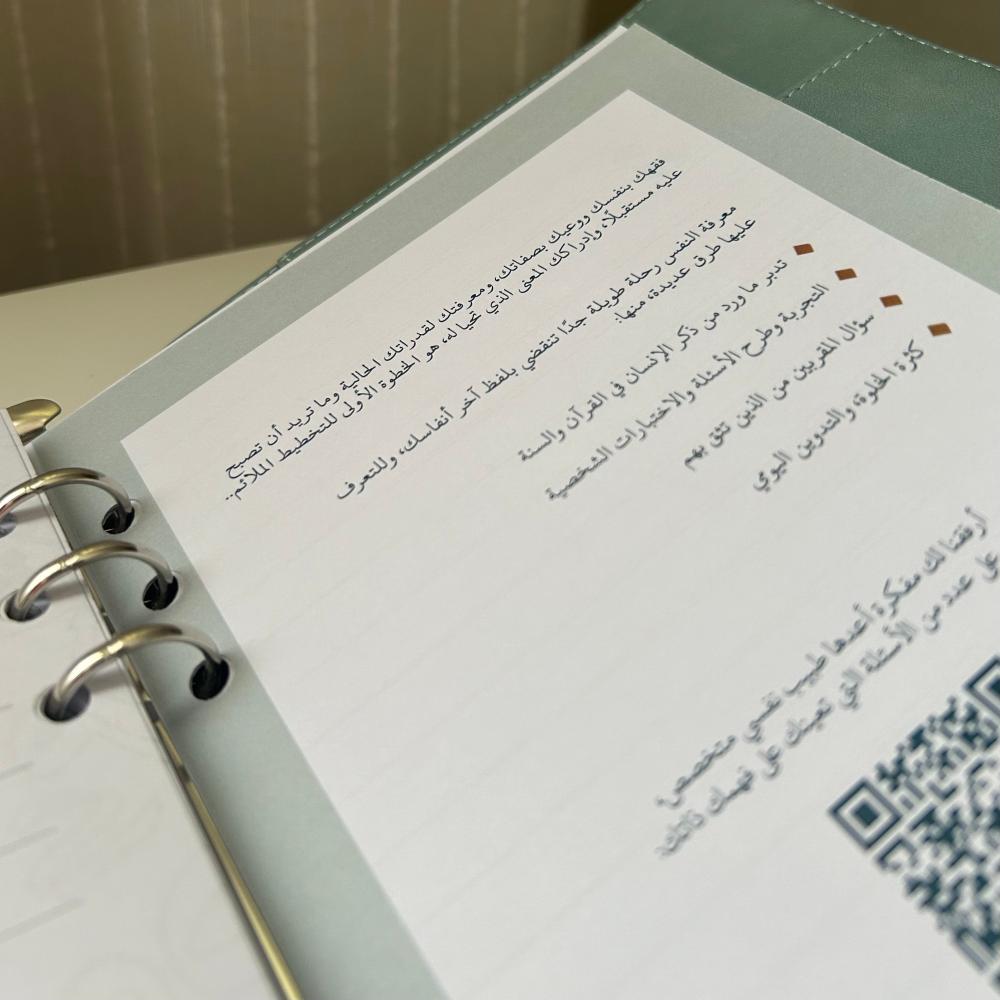 فقهك بنفسك ووعيك بصفاتك، ومعرفتك لقدراتك الحالية وما تريد أن تصبح
عليه مستقبلًا، وإدراكك المعنى الذي تحيا له، هو الخطوة الأولى للتخطيط الملائم..
معرفة النفس رحلة طويلة جدًا تنقضي بلفظ آخر أنفاسك، وللتعرف
عليها طرق عديدة، منها:
تدبر ما ورد من ذكر الإنسان في القرآن والسنة
التجربة وطرح الأسئلة والاختبارات الشخصية
سؤال المقربين من الذين تثق بهم
كثرة الخلوة، والتدوين اليومي
أرفقنا لك مفكرة أعدها طبيب نفسي متخصص،
على عدد من الأسئلة التي تعينك على فهمك ذاتك: